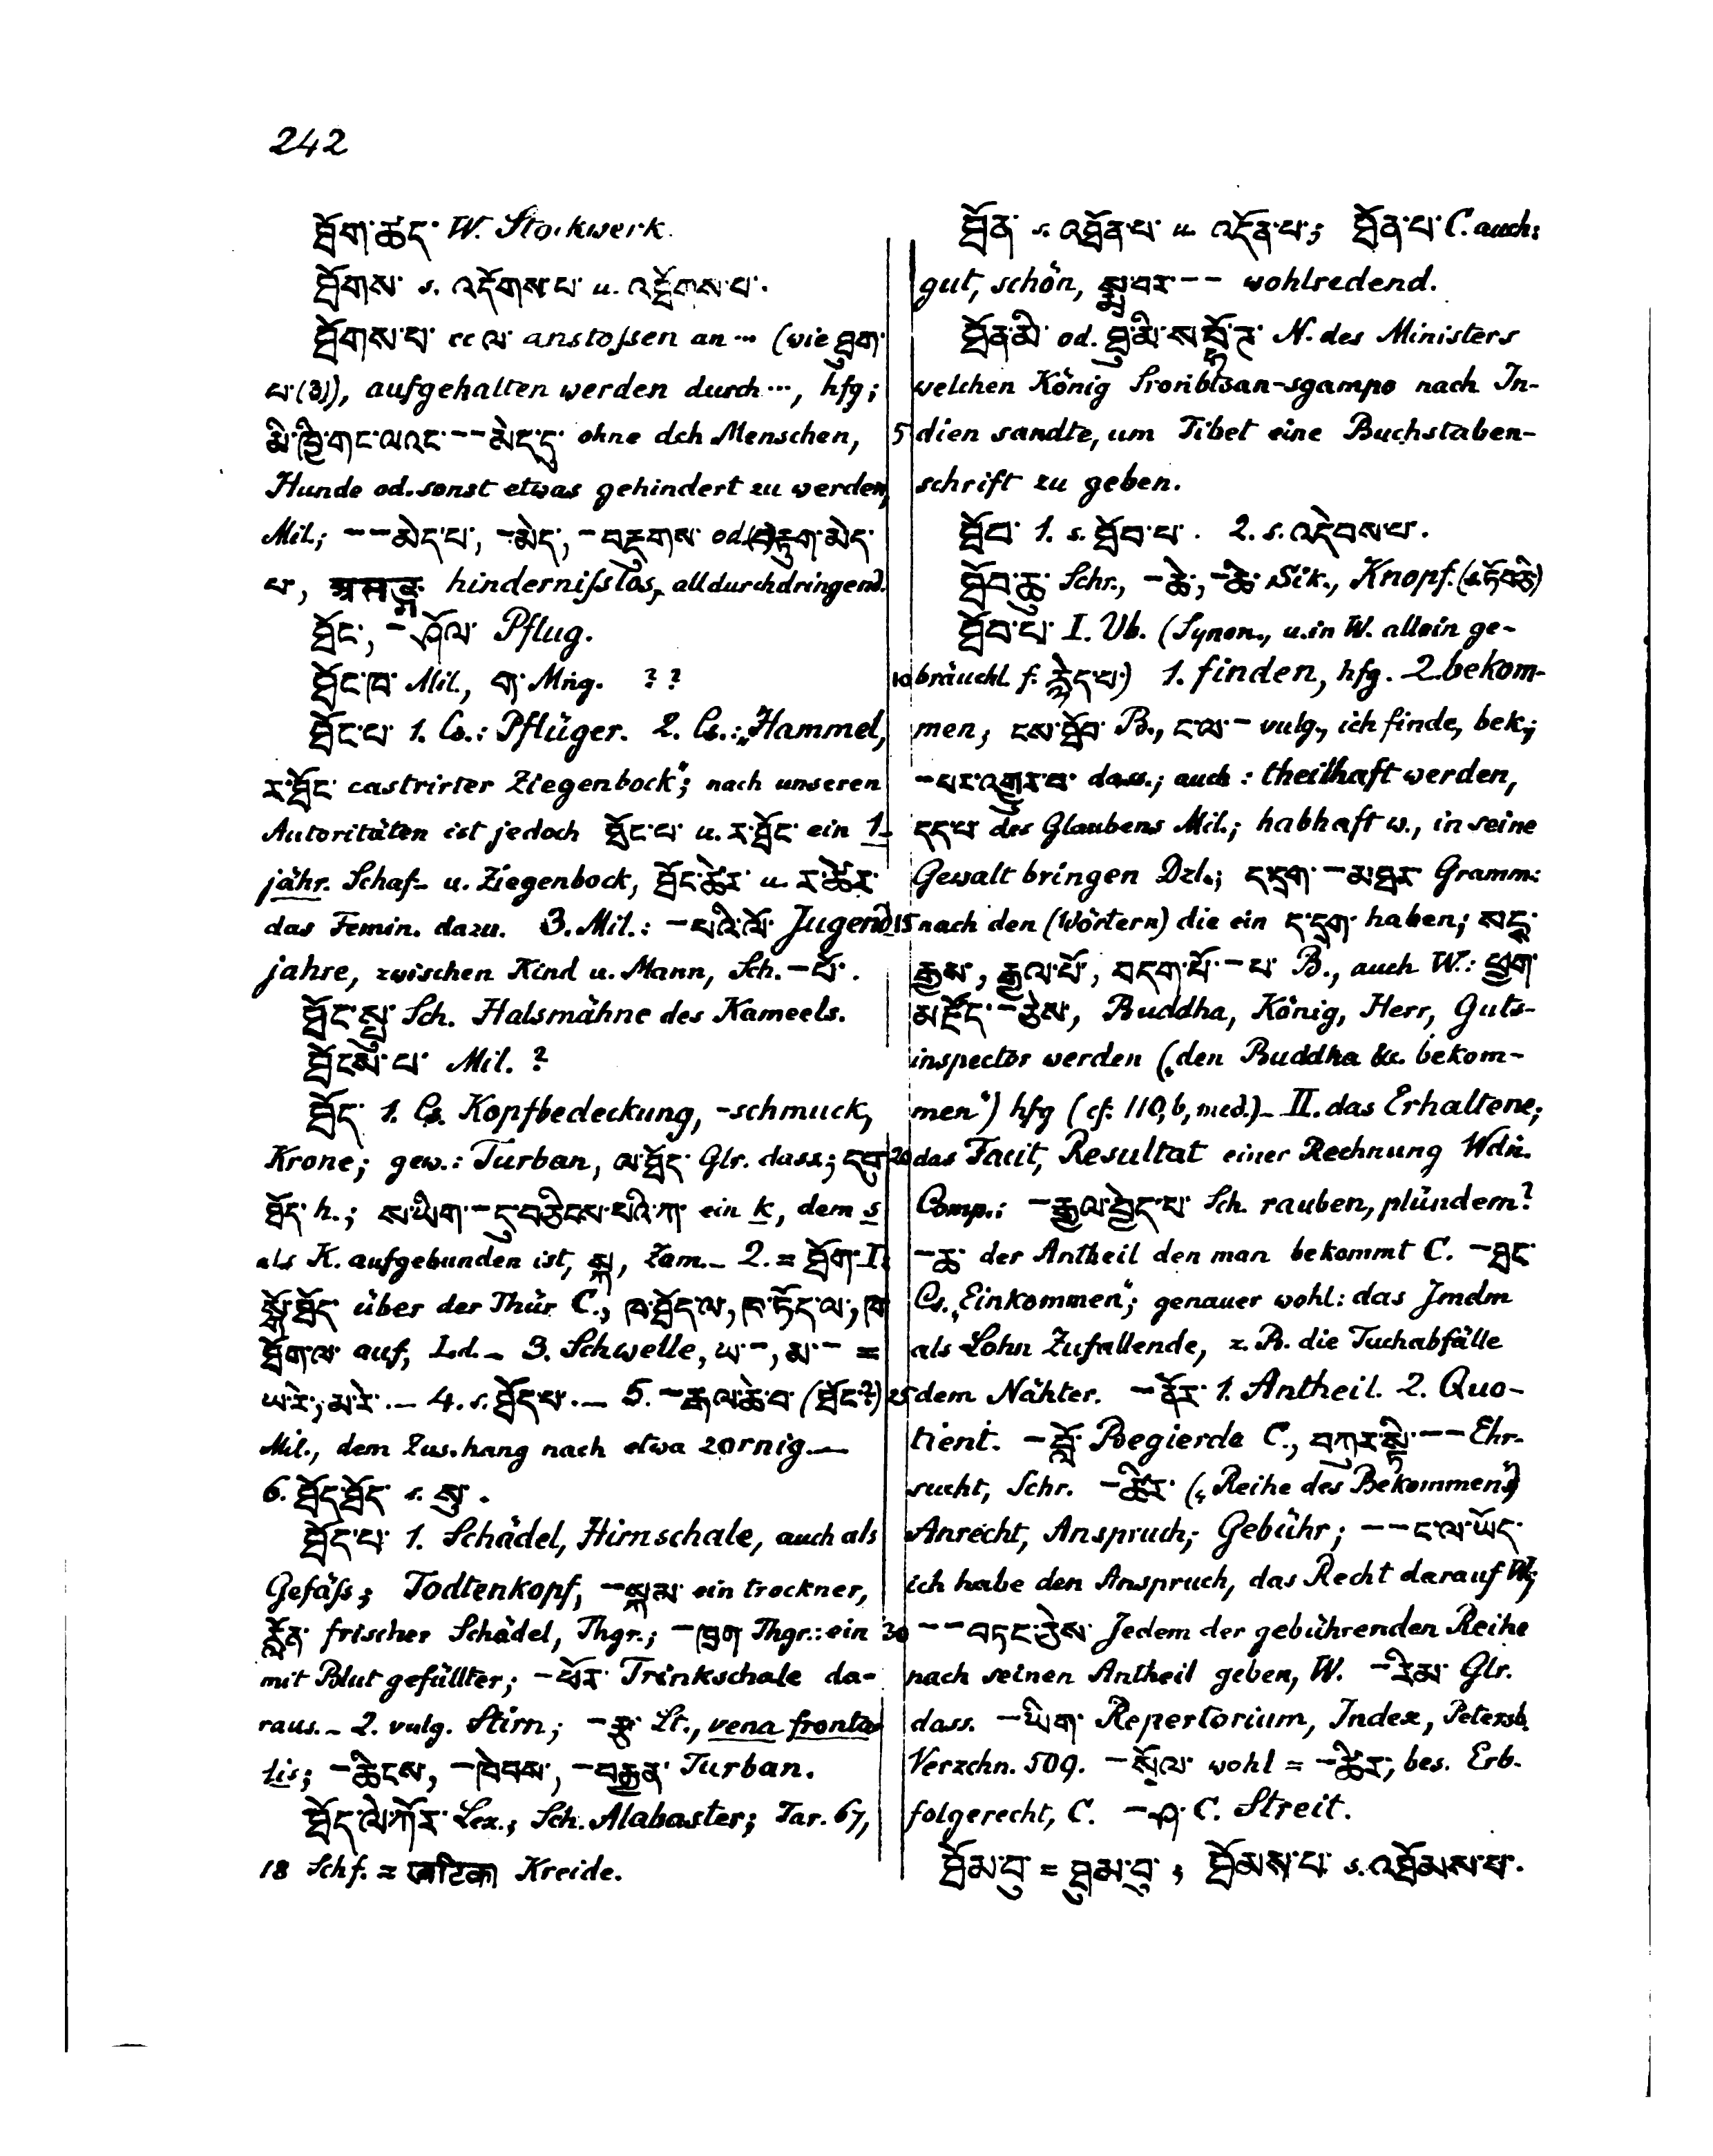 242
ཐོག་ཚད་ W. Stockwerk.
ཐོགས་ s. འདོགས་པ་ u. འཐོགས་པ་.
ཐོགས་པ་ cc ལ་ anstoſsen an ... (wie ཐུག་
པ་ (3)), aufgehalten werden durch ..., hfg;
མི་ཁྱི་གང་ལའང་ -- མེད་དུ་ ohne dch Menschen,
Hunde od. sonst etwas gehindert zu werden,
Mil.; -- མེད་པ་, - མེད་, - བརྡུགས་ od. མེད་
པ་, hinderniſslos, alldurchdringend.
ཐོང་, - ཤོལ་ Pflug.
ཐོང་ཁ་ Mil., ག་ Mṅg. ??
ཐོང་པ་ 1. Cs.: Pflüger. 2. Cs.: „Hammel,
ར་ཐོང་ castrirter Ziegenbock“; nach unseren
Autoritäten ist jedoch ཐོང་པ་ u. ར་ཐོང་ ein 1-
jähr. Schaf- u. Ziegenbock, ཐོང་ཚེར་ u. ར་ཚེར་
das Femin. dazu. 3. Mil.: - པའི་ལོ་ Jugend-
jahre, zwischen Kind u. Mann, Sch. - པོ་.
ཐོང་སྤུ་ Sch. Halsmähne des Kameels.
ཐོངམེ་པ་ Mil. ?
ཐོད་ 1. Cs. Kopfbedeckung, -schmuck,
Krone; gew.: Turban, ལ་ཐོད་ Glr. dass.; དབུ་
ཐོད་ h.; ས་ཡིག་ - དུ་བཅིངས་པའི་ཀ་ ein k, dem s
als K. aufgebunden ist, སྐ, Zam. - 2. = ཐོག་ I.
སྒོ་ཐོད་ über der Thür C., ཁ་ཐོད་ལ་, ཁ་ཏོད་ལ་, ཁ་
ཐོག་ལ་ auf, Ld. - 3. Schwelle, ཡ་ -, མ་ - =
ཡ་རེ་, མ་རེ་. - 4. s. ཐོད་པ་. - 5. - རྒལ་ཆེ་བ་ (ཐོང་?)
Mil., dem Zus.hang nach etwa zornig. -
6. ཐོད་ཐོད་ s. སྤུ་.
ཐོད་པ་ 1. Schädel, Hirnschale, auch als
Gefäſs; Todtenkopf, - སྐམ་ ein trockner,
རློན་ frischer Schädel, Thgr.; - ཁྲག་ Thgr.: ein
mit Blut gefüllter; - ཕོར་ Trinkschale da-
raus. - 2. vulg. Stirn; - རྩ་ Lt., vena fronta-
lis; - ཅིངས་, - ཁེབས་, - བརྒྱན་ Turban.
ཐོད་ལེ་ཀོར་ Lex.; Sch. Alabaster; Tar. 67,
18 Schf. = खटिका Kreide.
ཐོན་ s. འཐོན་པ་ u. འདོན་པ་; ཐོན་པ་ C. auch:
gut, schön, སྨྲ་བར་ -- wohlredend.
ཐོན་མི་ od. ཐུ་མི་སམྦྷོ་ཊ་ N. des Ministers
welchen König Sroṅbtsan-sgampo nach In-
5 dien sandte, um Tibet eine Buchstaben-
schrift zu geben.
ཐོབ་ 1. s. ཐོབ་པ་. 2. s. འདེབས་པ་.
ཐོབ་ཆུ་ Schr., - ཆེ་, - ཆི་ Sik., Knopf.
ཐོབ་པ་ I. Vb. (Synon., u. in W. allein ge-
10 bräuchl. f. རྙེད་པ་) 1. finden, hfg. 2. bekom-
men; ངས་ཐོབ་ B., ང་ལ་ - vulg., ich finde, bek.;
- པར་འགྱུར་བ་ dass.; auch: theilhaft werden,
དད་པ་ des Glaubens Mil.; habhaft w., in seine
Gewalt bringen Dzl.; ད་དྲག་ - མཐར་ Gramm.:
15 nach den (Wörtern) die ein ད་དྲག་ haben; སངས་
རྒྱས་, རྒྱལ་པོ་, བདག་པོ་ - པ་ B., auch W.: ཕྱག་
མཛོད་ - ཅེས་, Buddha, König, Herr, Guts-
inspector werden („den Buddha &c. bekom-
men“) hfg (cf. 110, b, med.) - II. das Erhaltene;
20 das Facit, Resultat einer Rechnung Wdṅ.
Comp.: - རྒྱལ་བྱེད་པ་ Sch. rauben, plündern?
- ཆ་ der Antheil den man bekommt C. - ཐང་
Cs. „Einkommen“; genauer wohl: das Jmdm
als Lohn Zufallende, z. B. die Tuchabfälle
25 dem Nähter. - ནོར་ 1. Antheil. 2. Quo-
tient. - བློ་ Begierde C., བཀུར་སྟི་ -- Ehr-
sucht, Schr. - ཚིར་ („Reihe des Bekommens“)
Anrecht, Anspruch, Gebühr; -- ང་ལ་ཡོད་
ich habe den Anspruch, das Recht darauf W.;
30 -- བཏང་ཅེས་ Jedem der gebührenden Reihe
nach seinen Antheil geben, W. - རིམ་ Glr.
dass. - ཡིག་ Repertorium, Index, Petersb.
Verzchn. 509. - སྲོལ་ wohl = - ཚིར་, bes. Erb-
folgerecht, C. - ཤ་ C. Streit.
ཐོམ་བུ་ = ཐུམ་བུ་, ཐོམས་པ་ s. འཐོམས་པ་.